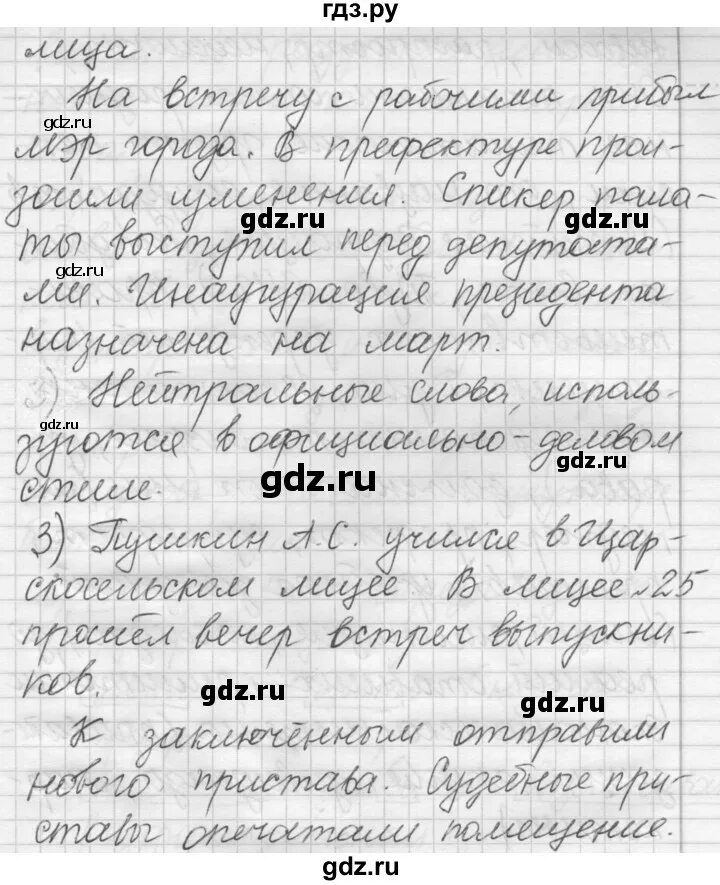 гдз.ру
лица.
На встречу с рабочими прибыл
gdz.ru
мэр города. В префектуре прои-
зошли изменения. Спикер пала-
gdz.ru gdz.ru
ты выступил перед депутата-
gdz.ru
ми. Инаугурация президента
назначена на март.
2) Нейтральные слова, исполь-
gdz.ru
зуются в официально-деловом
gdz.ru
стиле.
gdz.ru
3) Пушкин А.С. учился в Цар-
скосельском лицее. В лицее №25
прошёл вечер встреч выпускни-
ков.
gdz.ru gdz.ru
К заключённым отправили
нового пристава. Судебные при-
gdz.ru gdz.ru
ставы опечатали помещение.
gdz.ru